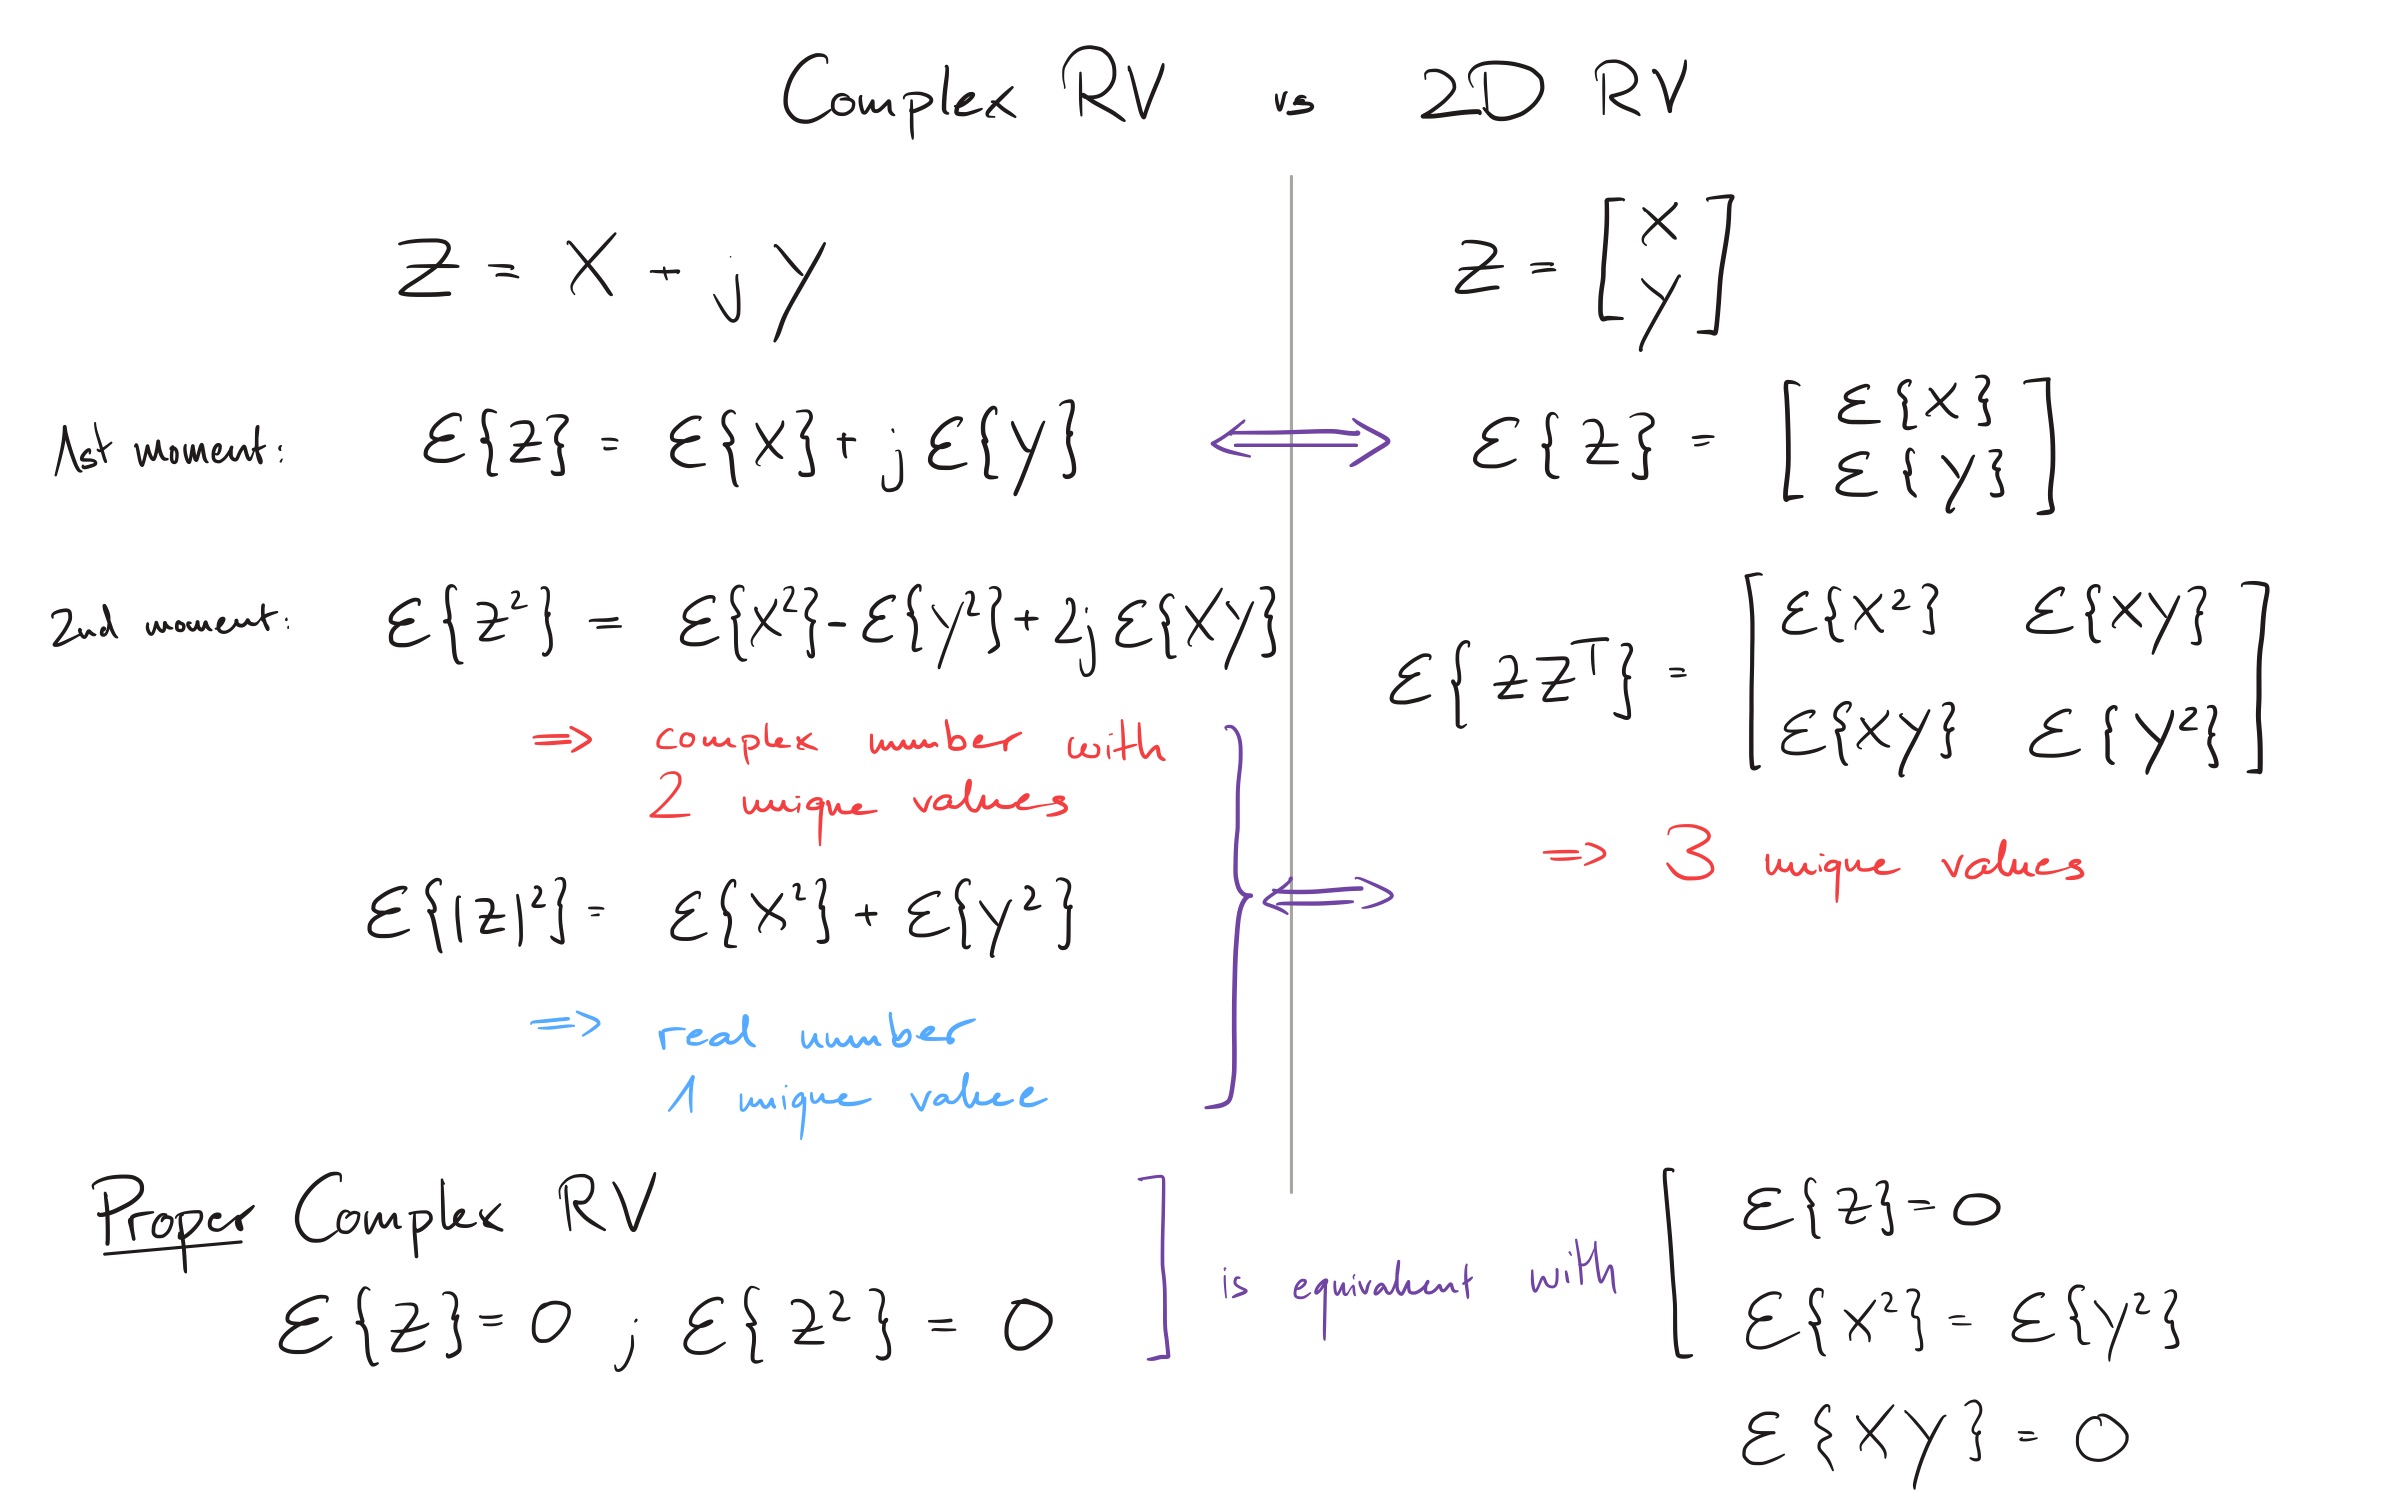 Complex RV vs 2D RV
Z = X + jY
Z = [X Y]
1st moment: ℰ{Z} = ℰ{X} + jℰ{Y} ⟺ ℰ{Z} = [ℰ{X} ℰ{Y}]
2nd moment: ℰ{Z²} = ℰ{X²} - ℰ{Y²} + 2jℰ{XY}
⇒ complex number with
2 unique values
ℰ{|Z|²} = ℰ{X²} + ℰ{Y²}
⇒ real number
1 unique value
⟺
ℰ{ZZᵀ} = [ℰ{X²} ℰ{XY}
ℰ{XY} ℰ{Y²}]
⇒ 3 unique values
Proper Complex RV
ℰ{Z} = 0 ; ℰ{Z²} = 0
is equivalent with
ℰ{Z} = 0
ℰ{X²} = ℰ{Y²}
ℰ{XY} = 0